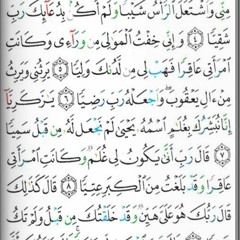 مِنِّي وَٱشْتَعَلَ ٱلرَّأْسُ شَيْبًا وَلَمْ أَكُنۢ بِدُعَآئِكَ رَبِّ
شَقِيًّا ٤ وَإِنِّي خِفْتُ ٱلْمَوَٰلِيَ مِن وَرَآءِي وَكَانَتِ
ٱمْرَأَتِي عَاقِرًا فَهَبْ لِي مِن لَّدُنكَ وَلِيًّا ٥ يَرِثُنِي وَيَرِثُ
مِنْ ءَالِ يَعْقُوبَ وَٱجْعَلْهُ رَبِّ رَضِيًّا ٦ يَٰزَكَرِيَّآ
إِنَّا نُبَشِّرُكَ بِغُلَٰمٍ ٱسْمُهُۥ يَحْيَىٰ لَمْ نَجْعَل لَّهُۥ مِن قَبْلُ سَمِيًّا
٧ قَالَ رَبِّ أَنَّىٰ يَكُونُ لِي غُلَٰمٌ وَكَانَتِ ٱمْرَأَتِي
عَاقِرًا وَقَدْ بَلَغْتُ مِنَ ٱلْكِبَرِ عِتِيًّا ٨ قَالَ كَذَٰلِكَ
قَالَ رَبُّكَ هُوَ عَلَيَّ هَيِّنٌ وَقَدْ خَلَقْتُكَ مِن قَبْلُ وَلَمْ تَكُ